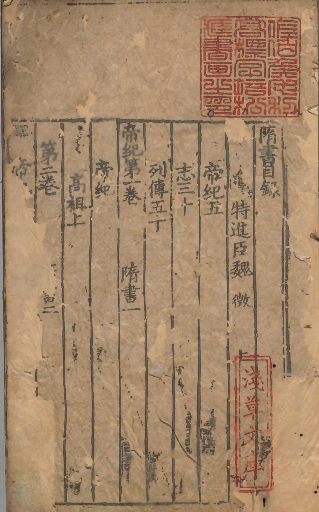 隋書目錄
特進臣魏 徵
帝紀五
志三十
列傳五十
帝紀第一卷 隋書一
帝紀
高祖上
第二卷
帝
淺草文庫